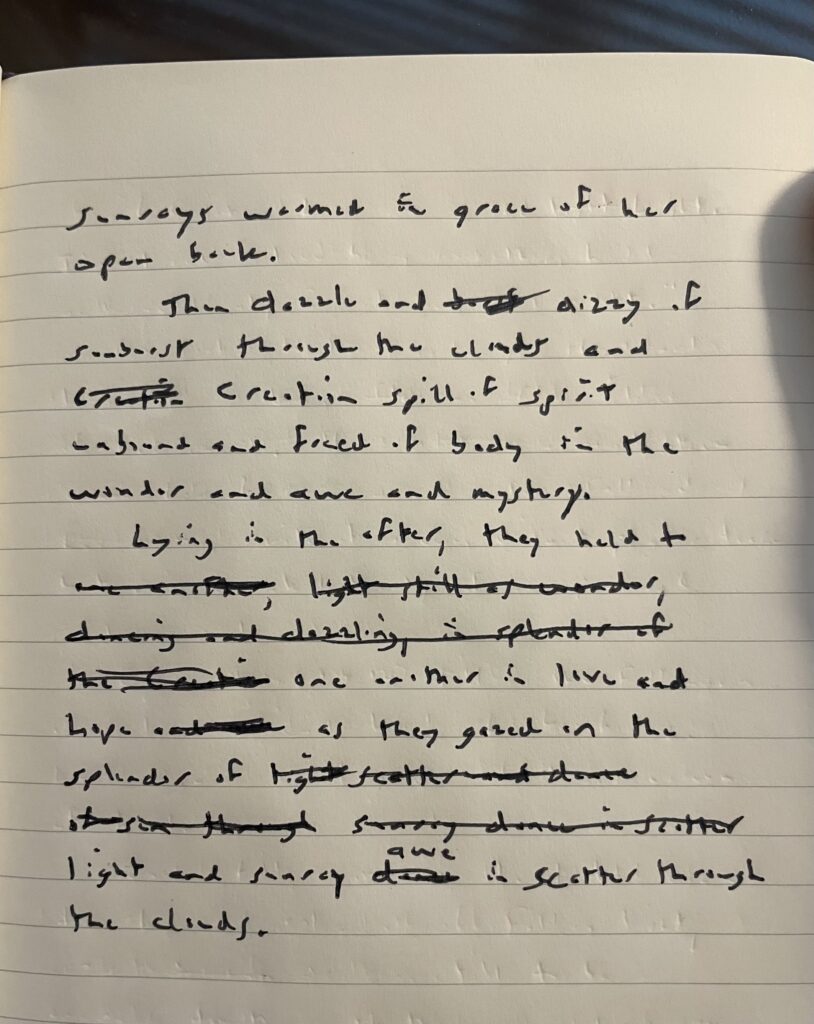 sunrays warmed the grace of her
open back.
Then dazzle and dizzy of
sunburst through the clouds and
Creation Creation spill of spirit
unbound and freed of body in the
wonder and awe and mystery.
Lying in the after, they held to
one another, light still as wonder,
dancing and dazzling, in splendor of
the one another in love and
hope and as they gazed on the
splendor of light scatter and dance
of sun through sunray dance in scatter
awe
light and sunray dance in scatter through
the clouds.